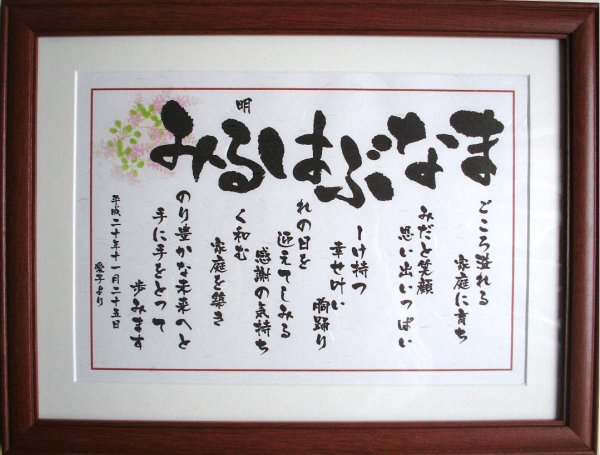 まなぶはるみ
明
ごころ溢れる
家庭に育ち
みだと笑顔
思い出いっぱい
ーけ持つ
幸せ叶い
胸踊り
れの日を
迎えてしみる
感謝の気持ち
く和む
家庭を築き
のり豊かな未来へと
手に手をとって
歩みます
平成二十年十一月二十五日
愛子より